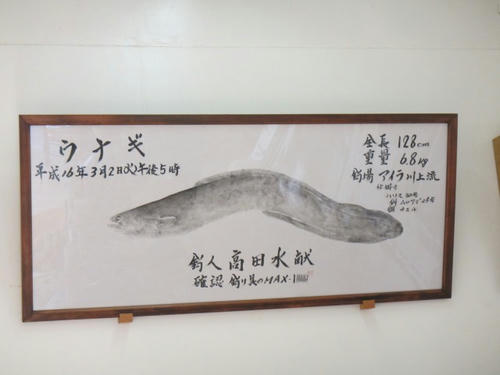 ウナギ
平成16年3月2日(火)午後5時
全長 128cm
重量 6.8kg
釣場 アイラ川上流
仕掛け
釣人 高田水献
確認 釣り具のMAX-1